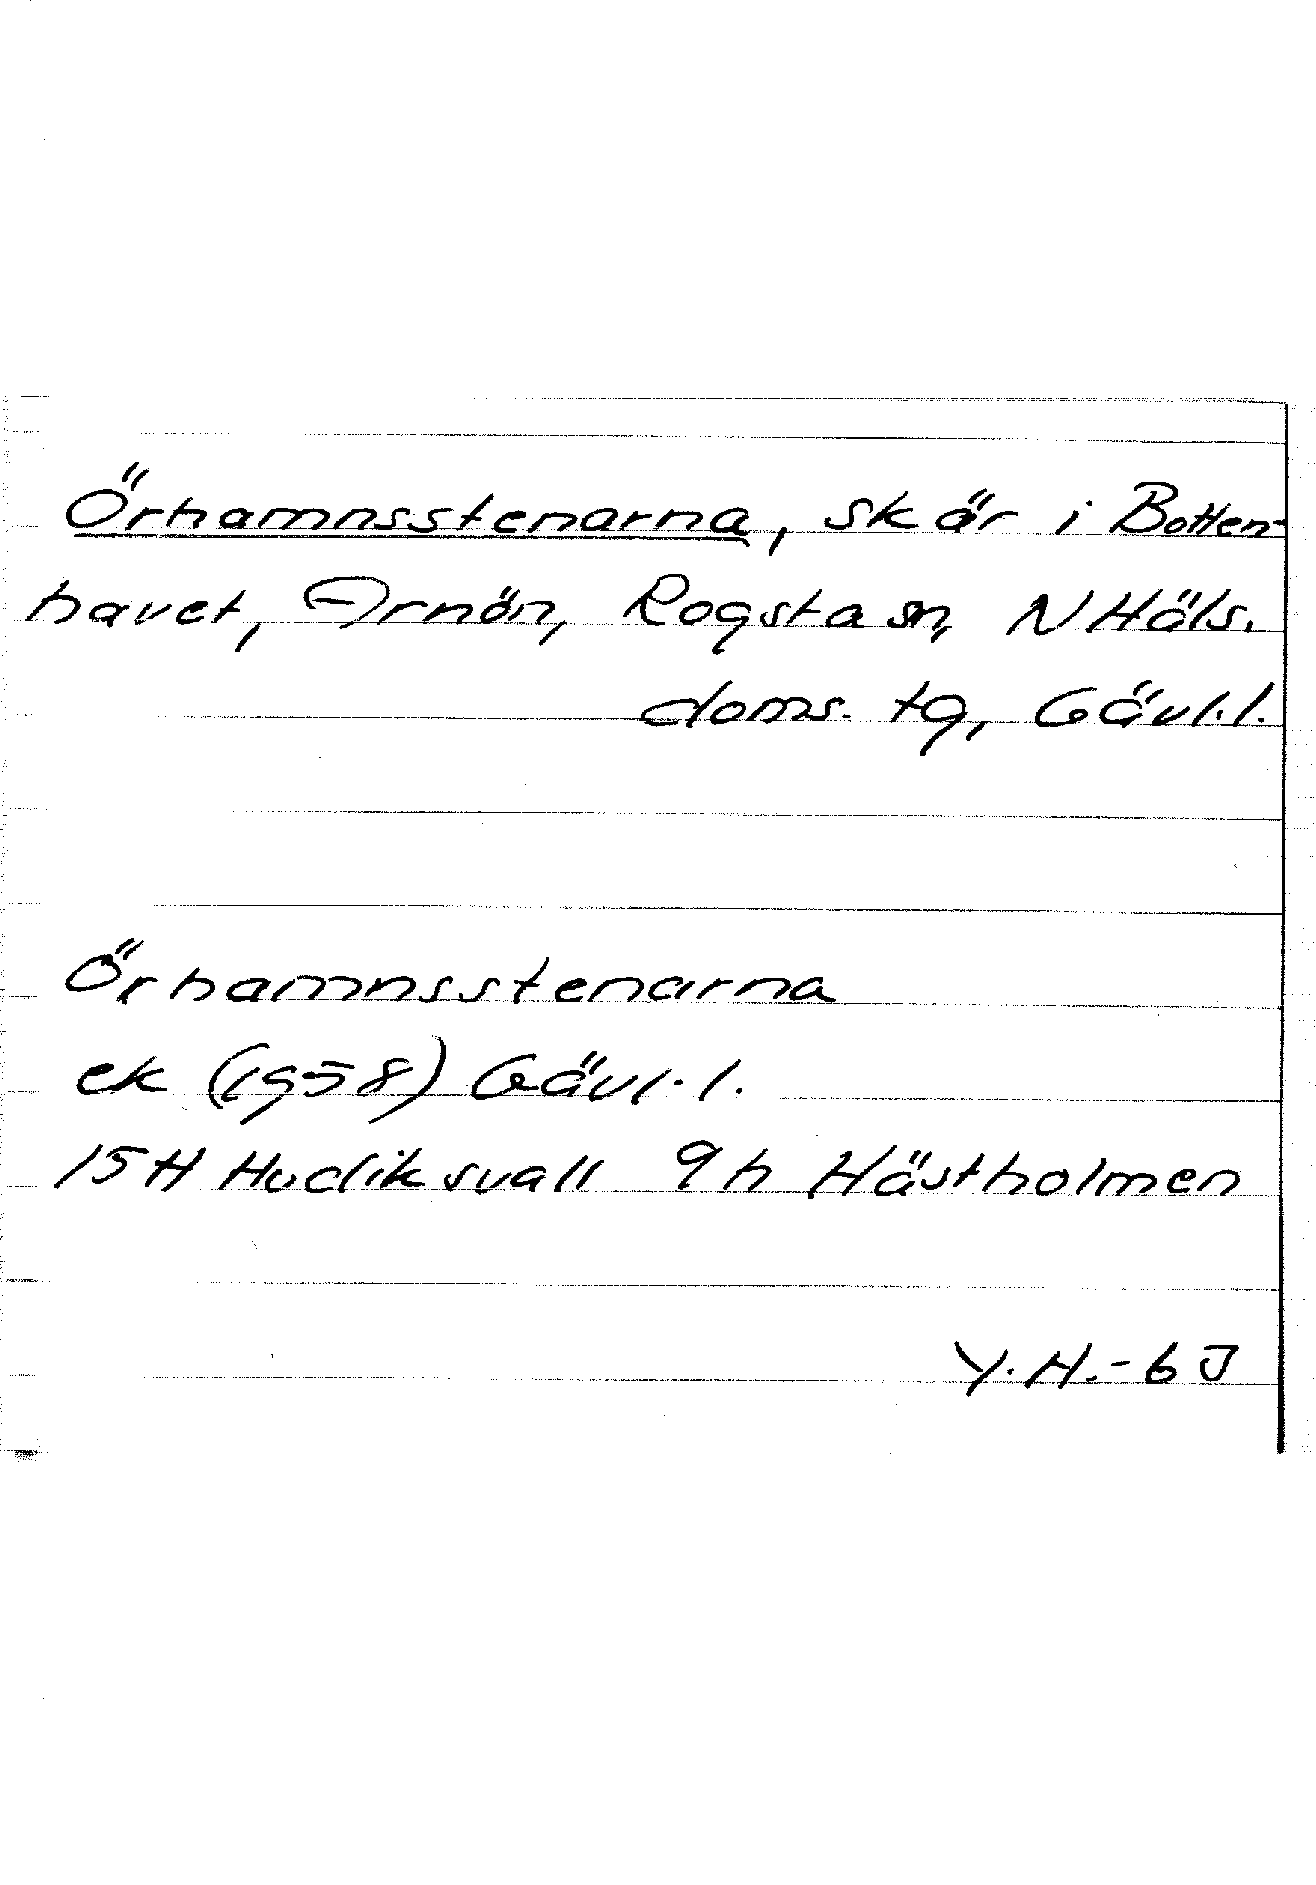 Örhamnsstenarna, skär i Botten-
havet, Arnön, Rogsta sn, N Häls.
doms. tg, Gävl.l.
Örhamnsstenarna
ek (1958) Gävl.l.
15H Hudiksvall 9h Hästholmen
Y.H.-65